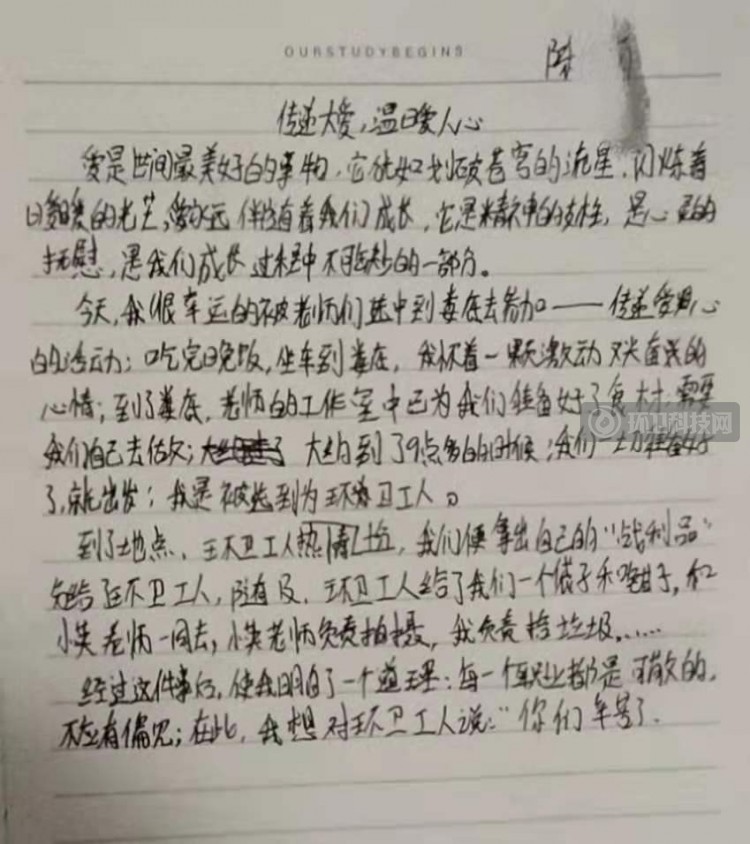 OURSTUDYBEGINS
陈
传递大爱，温暖人心
爱是世间最美好的事物，它犹如划破苍穹的流星，闪烁着
暖暖的光芒，爱永远伴随着我们成长，它是精神的支柱，是心灵的
抚慰，是我们成长过程中不可缺少的一部分。
今天，我很幸运的被老师们选中到娄底去参加——传递爱心
的活动；吃完晚饭，坐车到娄底，我怀着一颗激动又兴奋的
心情；到了娄底，老师的工作室中已为我们准备好了食材，需要
我们自己去做；大约到了9点多的时候，我们一切准备好
了，就出发；我是被选到为环卫工人。
到了地点，环卫工人热情，我们便拿出自己的“战利品”
给环卫工人，随及，环卫工人给了我们一个袋子和钳子，和
小英老师一同去，小英老师负责拍摄，我负责捡垃圾……
经过这件事后，使我明白了一个道理：每一个职业都是可敬的，
不应有偏见；在此，我想对环卫工人说：“你们辛苦了。
环卫科技网